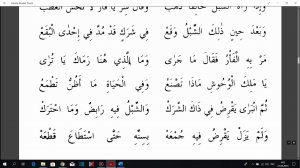 وَبَعْدَ حِينٍ ذَلِكَ الشِّبْلُ وَقَعْ فِي شَرَكٍ قَدْ مُدَّ فِي إِحْدَى الْبُقَعْ
مَرَّ بِهِ الْفَأْرُ فَقَالَ مَا جَرَى وَمَا الَّذِي هُنَا رَمَاكَ يَا تُرَى
يَا مَلِكَ الْوُحُوشِ مَاذَا تَصْنَعُ وَفِي الْحَيَاةِ مَا أَظُنُّ تَطْمَعُ
ثُمَّ انْبَرَى يَقْرِضُ فِي ذَاكَ الشَّرَكْ وَالشِّبْلُ فِيهِ رَابِضٌ وَمَا احْتَرَكْ
وَلَمْ يَزَلْ يَقْرِضُ فِيهِ جُمْعَهْ بِسِنِّهِ حَتَّى اسْتَطَاعَ قَطْعَهْ